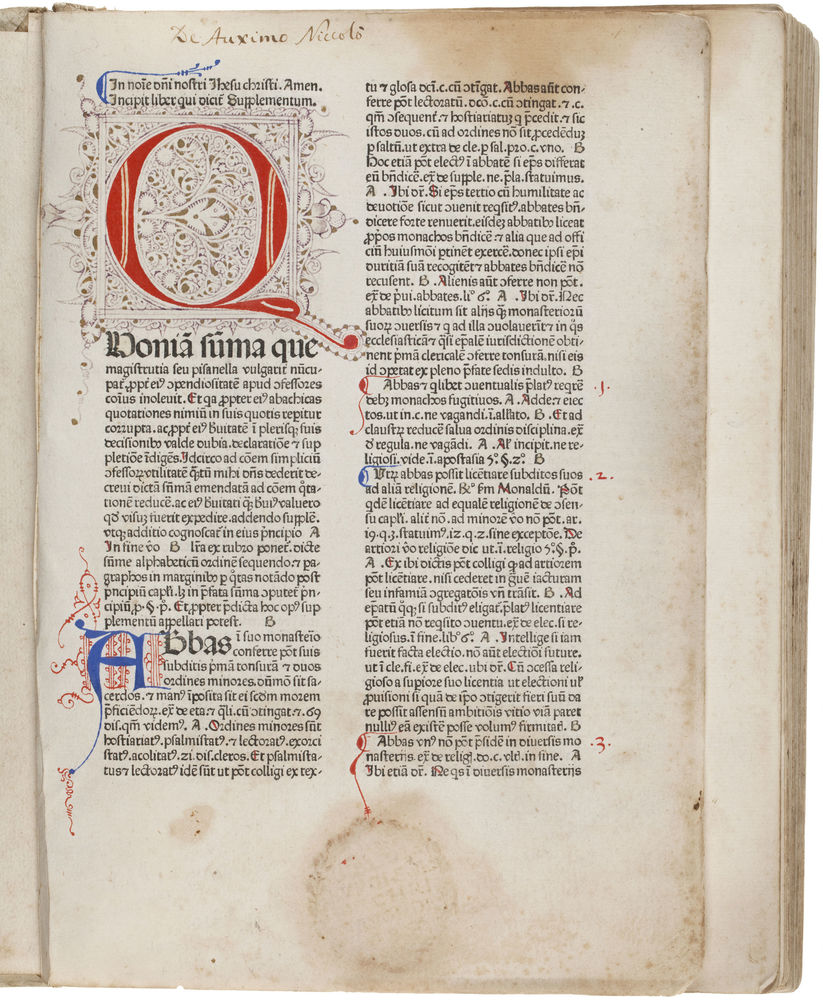 De Auximo Niccolò
In noīe dñi nostri Jhesu christi. Amen.
Incipit liber qui dicit᷑ Supplementum.
Q
Voniā sūma que
magistrutia seu pisanella vulgarit᷑ nūcu-
pat᷑ ꝓpt᷑ eiꝰ ↄpendiositatē apud ↄfessores
coīus inoleuit. Et qa ꝓpter eiꝰ abachicas
quotationes nimiū in suis quotis repitur
corrupta. ac ꝓpt᷑ eiꝰ buitatē ī plerisq suis
decisionibꝰ valde dubia. declaratiōe ⁊ sup
pletiōe īdigēs. Idcirco ad cōem simpliciū
ↄfessoꝝ vtilitatē qtū mihi dñs dederit de-
creui dictā sūmā emendatā ad cōem qta-
tionē reducē. ac eiꝰ buitati q buiꝰ valuero
qd visuꝫ fuerit expedire. addendo supplē.
vtqꝫ additio cognoscat᷑ in eius pncipio A
In fine vo B lra ex rubro ponet᷑. dicte
sūme alphabeticū ordinē sequendo. ⁊ pa-
graphos in marginibꝰ p qtas notādo post
pncipiū capli. lꝫ in pfata sūmia ↄputet᷑ pn-
cipiū. ꝓ. §. pꝰ. Et ꝓpter pdicta hoc opꝰ sup
plementū appellari potest. B
ABbas ī suo monasterio
conferre pōt suis
subditis pmā tonsurā ⁊ duos
ordines minores. dūmō sit sa-
cerdos. ⁊ manꝰ īposita sit ei scdm morem
pficiēdoꝝ. ex̄ de eta. ⁊ qli. cū ↄtingat. ⁊. 69
dis. qm videmꝰ. A. Ordines minores sūt
hostiariatꝰ. psalmistatꝰ. ⁊ lectoratꝰ. exorci
statꝰ. acolitatꝰ. zi. dis. cleros. Et psalmista-
tus ⁊ lectoratꝰ idē sūt ut pōt colligi ex tex-
tu ⁊ glosa dcī. c. cū ↄtīgat. Abbas aūt con-
ferre pōt lectoratū. dcō. c. cū ↄtingat. ⁊. c.
qm ↄsequent᷑. ⁊ hostiariatuꝫ q pcedit. ⁊ sic
istos duos. cū ad ordines nō sit ꝓcedēduꝫ
p saltū. ut extra de cle. p sal. pzo. c. vno. B
Hoc etiā pōt electꝰ ī abbatē si eps differat
eū bñdicē. ex̄ de supple. ne. pla. statuimus.
A. Ibi dr̄. Si eps tertio cū humilitate ac
deuotiōe sicut ↄuenit reqsitꝰ. abbates bñ-
dicere forte renuerit. eisdeꝫ abbatibꝰ liceat
ꝓpos monachos bñdicē ⁊ alia que ad offi
ciū huiusmōi ptinēt exercē. donec ipsi epi
duritiā suā recogitēt ⁊ abbates bñdicē nō
recusent. B. Alienis aūt ↄferre non pōt.
ex̄ de pui. abbates. liꝰ 6ꝰ. A. Ibi dr̄. Nec
abbatibꝰ licitum sit alijs q monasterioꝝ
suoꝝ ↄuersis ⁊ q ad illa ↄuolauerīt ⁊ in qs
ecclesiasticā ⁊ qsi epalē iurisdictionē obti-
nent pmā clericalē ↄferre tonsurā. nisi eis
id ↄpetat ex pleno pfate sedis indulto. B
Abbas ⁊ qlibet ↄuentualis platꝰ reqrē .1.
debꝫ monachos fugitiuos. A. Adde. ⁊ eiec
tos. ut in. c. ne vagandi. ī. allato. B. Et ad
claustꝝ reducē salua ordinis disciplina. ex̄
d regula. ne vagādi. A. Al incipit. ne re-
ligiosi. vide. ī. apostasia 5ꝰ. §. zꝰ. B
Vtꝝ abbas possit licētiare subditos suos .2.
ad aliā religionē. Rꝰ. fm Monaldū. Pōt
qdē licētiare ad equalē religionē de ↄsen-
su capli. alit᷑ nō. ad minorē vo nō pōt. ar.
i9. q. 3. statuimꝰ. iz. q. z. sine exceptōe. De
artiori vo religiōe dic ut. ī. religio 5ꝰ. §. pꝰ.
A. Ex ibi dictis pōt colligi q ad artiorem
pōt licētiare. nisi cederet in guē iacturam
seu infamiā ↄgregatōis vn̄ trāsit. B. Ad
epatū qqꝫ si subditꝰ eligat᷑. platꝰ licentiare
pōt etiā nō reqsito ↄuentu. ex̄ de elec. si re-
ligiosus. ī fine. libꝰ 6ꝰ. A. Intellige si iam
fuerit facta electio. nō aūt electiōi suture.
ut ī cle. fi. ex̄ de elec. ubi dr̄. Cū ↄcessa reli-
gioso a supiore suo licentia ut electioni ul
ꝓuisioni si qua de ipo ↄtigerit fieri suū da
re possit assensū ambitiōis vitio viā paret
nulliꝰ eā existē posse volumꝰ firmitatē. B
Abbas vnꝰ nō pōt psidē in diuersis mo .3.
nasterijs. ex̄ de religi. do. c. vlt. in fine. A
Ibi etiā dr̄. Ne qs ī diuersis monasterijs